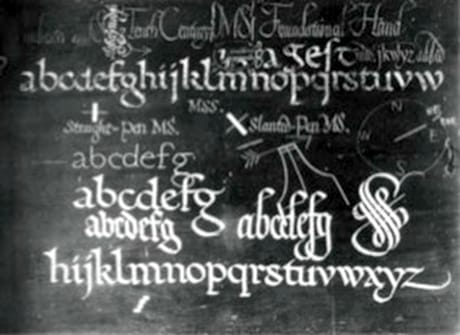 Tenth Century MS. Foundational Hand
a gest
abcdefghijklmnopqrstuvw
MSS.
Straight-pen MS. Slanted-Pen MS.
N
E
S
abcdefg
abcdefg
abcdefg abcdefg
hijklmnopqrstuvwxyz